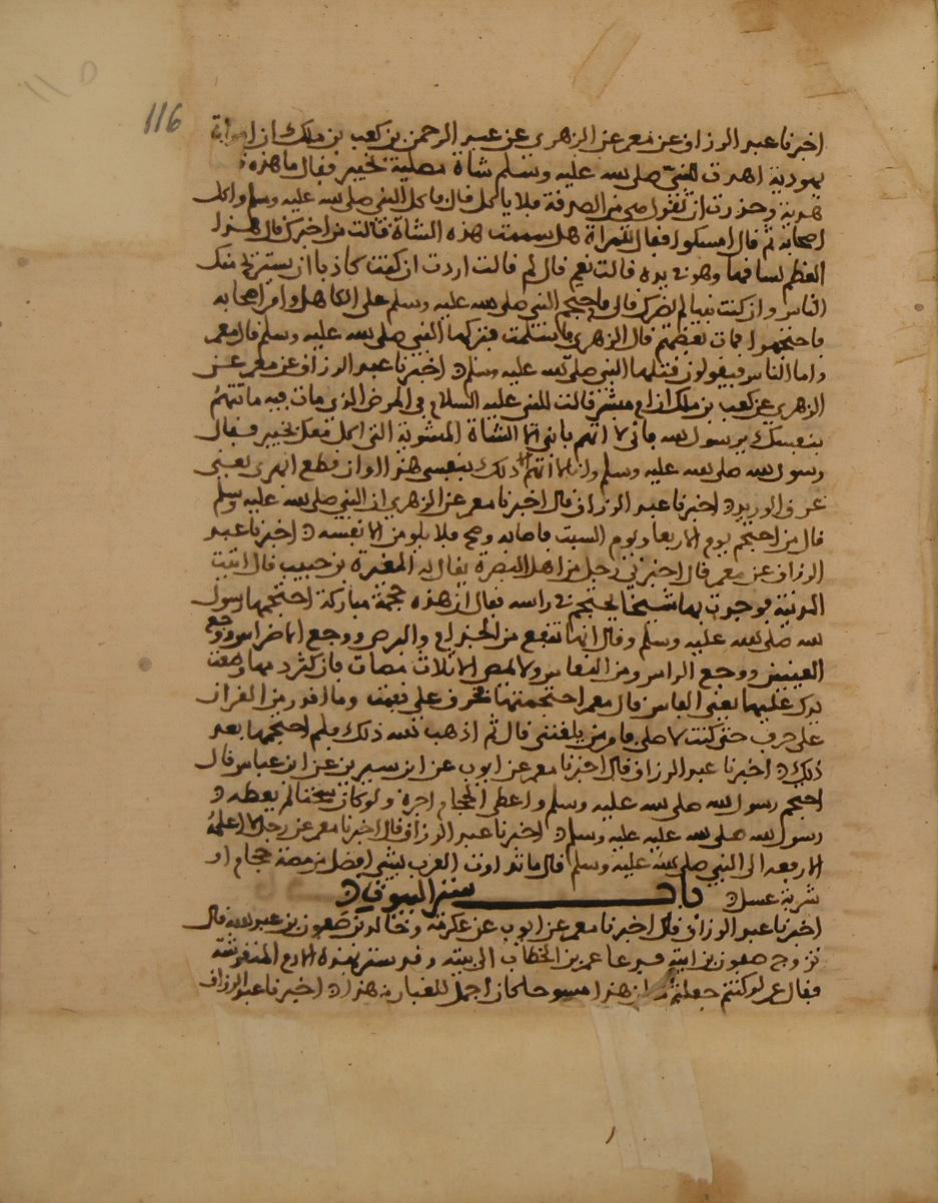 116
اخبرنا عبد الرزاق عن معمر عن الزهري عن عبد الرحمن بن كعب بن ملك ان امراة
يهودية اهدت للنبي صلى الله عليه وسلم شاة مصلية بخيبر فقال ما هذه
هدية وحذرت ان تقول من الصدقة فلا ياكل قال فاكل النبي صلى الله عليه وسلم واكل
اصحابه ثم قال امسكوا فقال للمراة هل سممت هذه الشاة قالت من اخبرك قال هذا
العظم لساقها وهو في يده قالت نعم قال لم قالت اردت ان كنت كاذبا ان يستريح منك
الناس وان كنت نبيا لم يضرك قال فاحتجم النبي صلى الله عليه وسلم على الكاهل وامر اصحابه
فاحتجموا فمات بعضهم قال الزهري فاسلمت فتركها النبي صلى الله عليه وسلم قال معمر
واما الناس فيقولون قتلها النبي صلى الله عليه وسلم اخبرنا عبد الرزاق عن معمر عن
الزهري عن كعب بن ملك ان ام مبشر قالت للنبي عليه السلام في المرض الذي مات فيه ما تتهم
بنفسك يرسول الله فاني لا اتهم بابني الا الشاة المشوية التي اكل معك بخيبر فقال
رسول الله صلى الله عليه وسلم وانا لا اتهم الا ذلك بنفسي هذا اوان قطع ابهري يعني
عرق الوريد اخبرنا عبد الرزاق قال اخبرنا معمر عن الزهري ان النبي صلى الله عليه وسلم
قال من احتجم يوم الاربعا ويوم السبت فاصابه وضح فلا يلومن الا نفسه اخبرنا عبد
الرزاق عن معمر قال اخبرني رجل من اهل البصرة يقال له المغيرة بن حبيب قال اتيت
المدينة فوجدت بها شيخا يحتجم في راسه فقال ان هذه حجمة مباركة احتجمها رسول
الله صلى الله عليه وسلم وقال انها تنفع من الجذام والبرص ووجع الاضراس ووجع
العينين ووجع الراس ومن النعاس ولا يمص الا ثلاث مصات فان كثر دمها وضعت
يدك عليها يعني الفاس قال معمر احتجمتها فخرق علي فقمت وما اقدر من القران
على حرف حتى كنت لاصلي فامر من يلقنني قال ثم اذهب الله ذلك فلم احتجمها بعد
ذلك اخبرنا عبد الرزاق قال اخبرنا معمر عن ايوب عن ابن سيرين عن ابن عباس قال
احتجم رسول الله صلى الله عليه وسلم واعطى الحجام اجره ولو كان سحتا لم يعطه
رسول الله صلى الله عليه وسلم اخبرنا عبد الرزاق قال اخبرنا معمر عن رجل لا اعلمه
الا رفعه الى النبي صلى الله عليه وسلم قال ما تداوت العرب بشي افضل من مصة حجام او
شربة عسل باب ستر البيوت
اخبرنا عبد الرزاق قال اخبرنا معمر عن ايوب عن عكرمة وخالد بن صفون بن عبد الله قال
تزوج صفون بن امية فدعا عمر بن الخطاب الى بيته وقد ستر بهذه الادم المنقوشة
فقال عمر لو كنتم جعلتم مكان هذا مسوحا كان اجمل للغبار من هذا اخبرنا عبد الرزاق